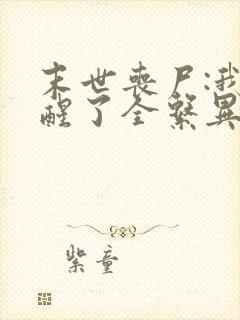 末世丧尸:我
醒了全系異
紫童